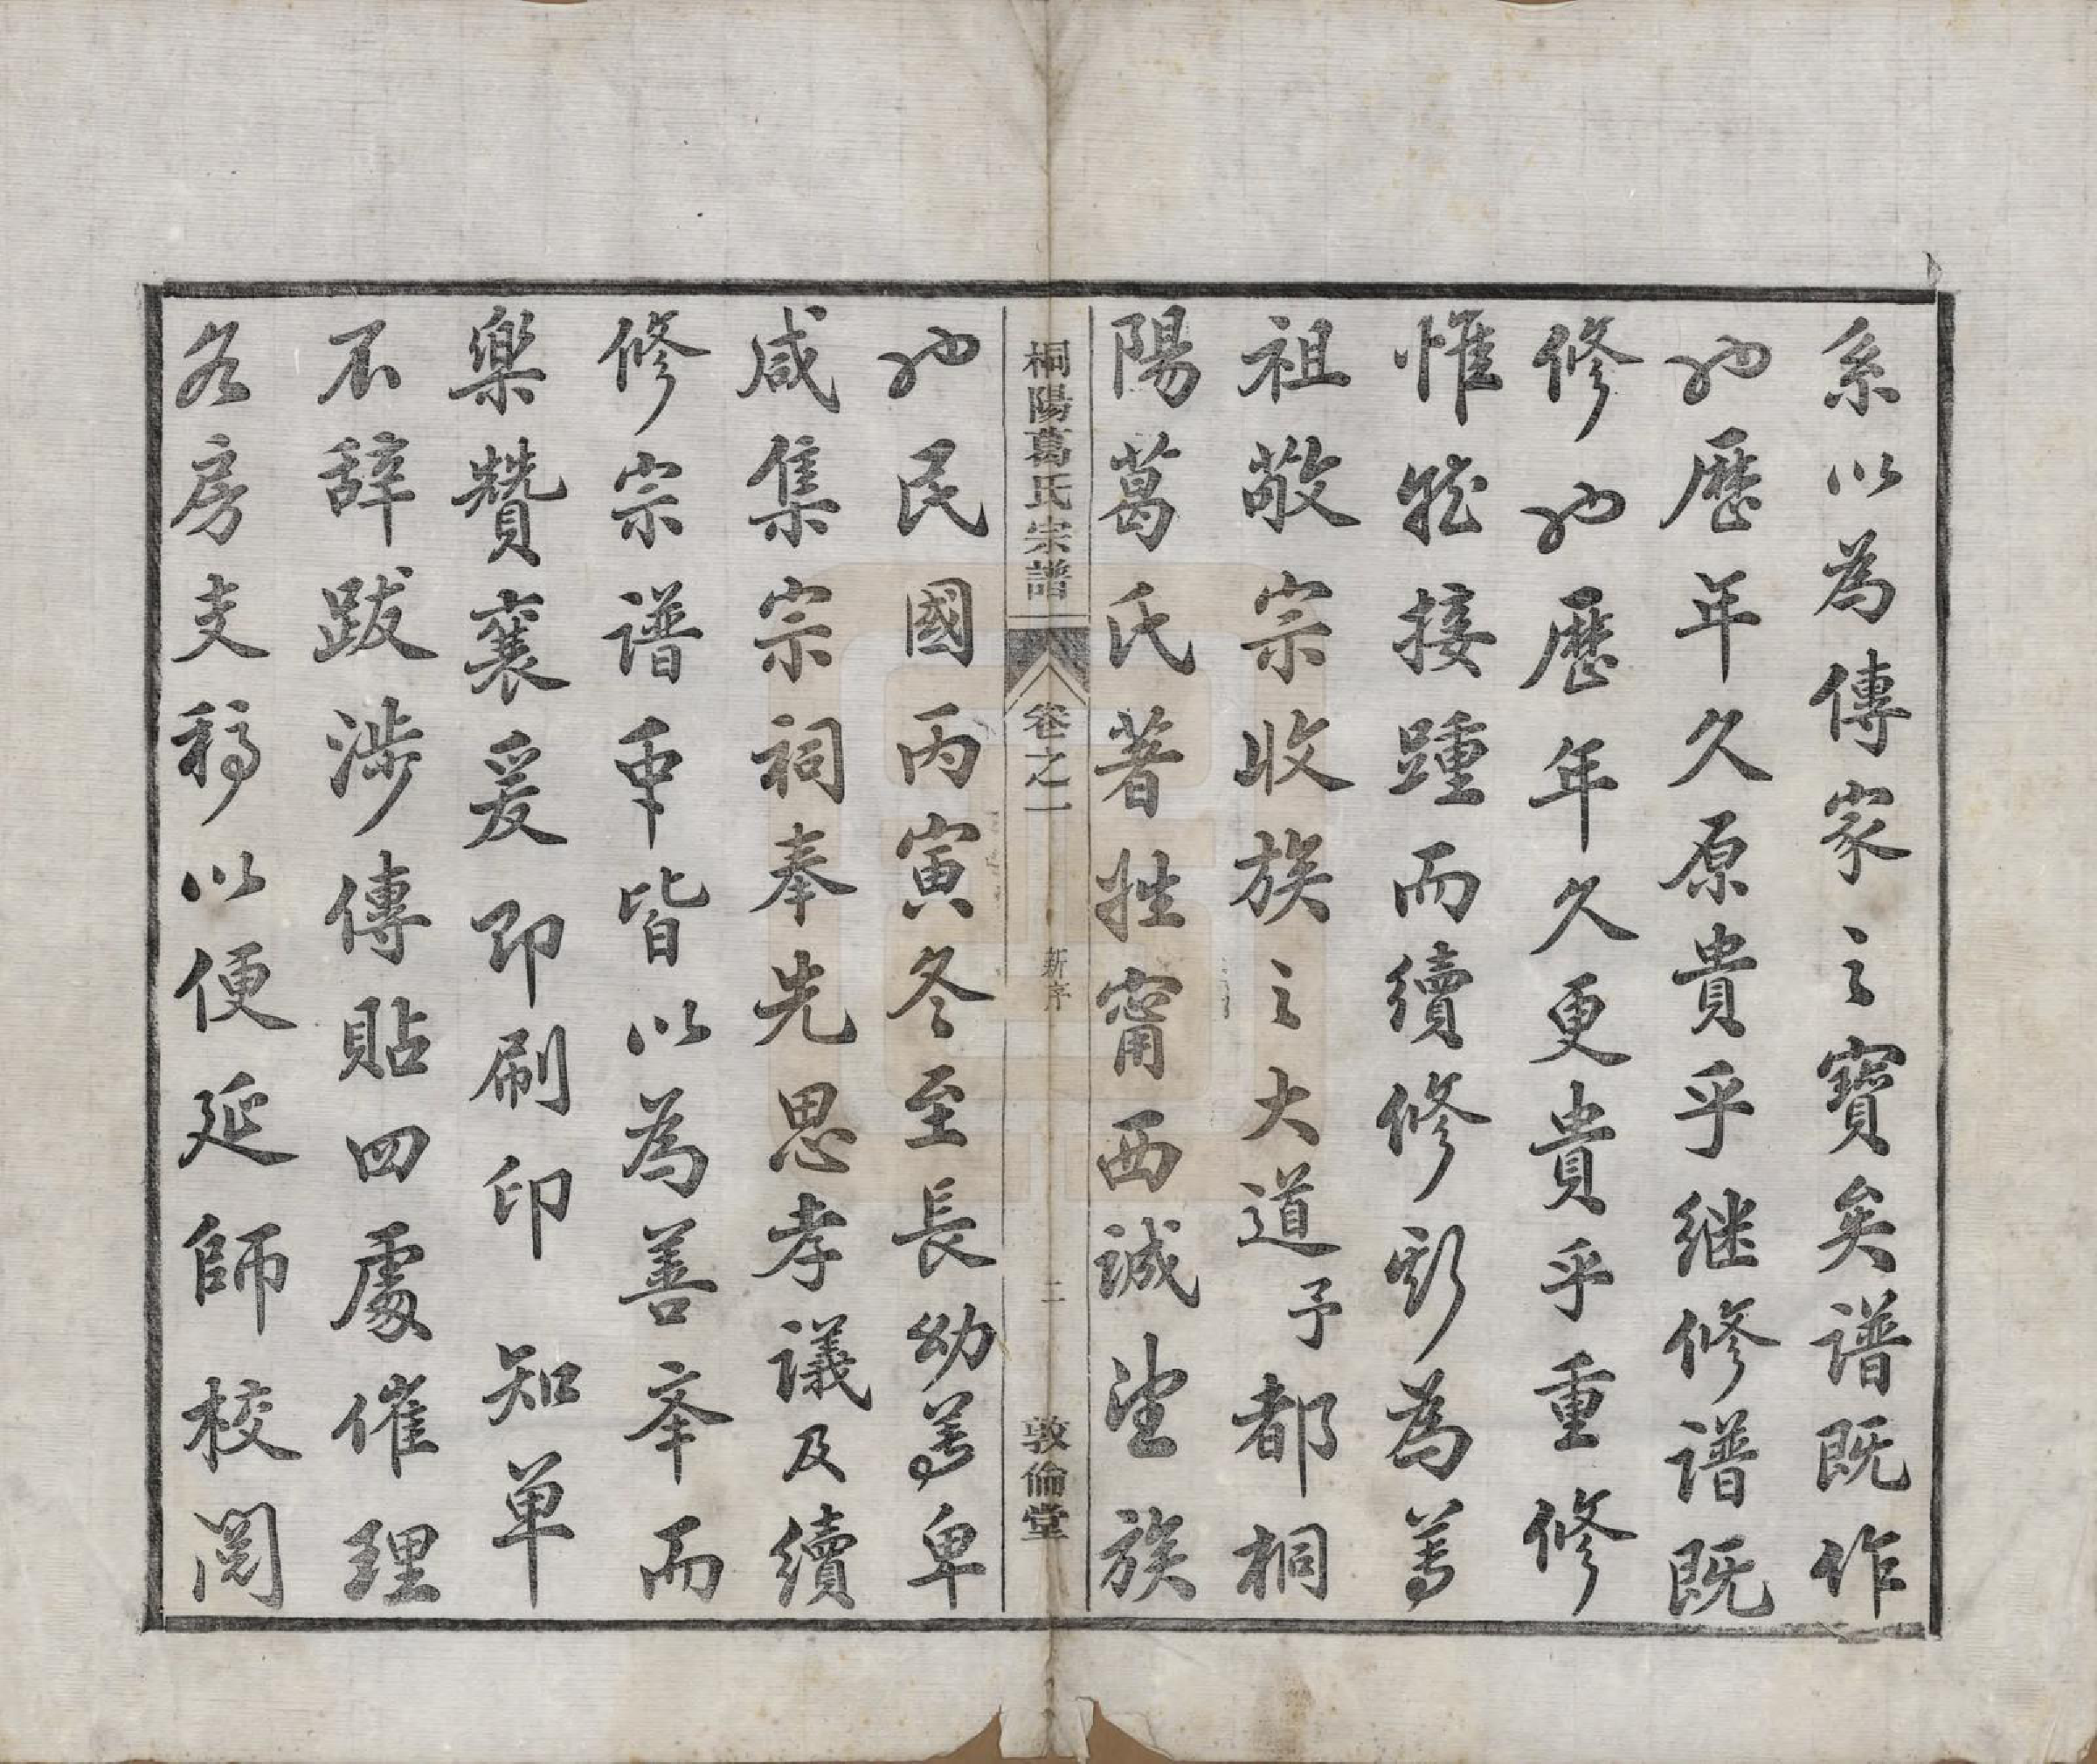 系以為傳家之寶矣譜既作
也歷年久原貴乎継修譜既
修也歷年久更貴乎重修
惟能接踵而續修斯為尊
祖敬宗收族之大道予都桐
陽葛氏著姓甯西誠望族
也民國丙寅冬至長幼尊卑
咸集宗祠奉先思孝議及續
修宗譜事皆以為善举而
樂贊襄爰即刷印知單
不辭跋涉傳貼四處催理
各房支稿以便延師校閱
桐陽葛氏宗譜
卷之一
新序
二
敦倫堂